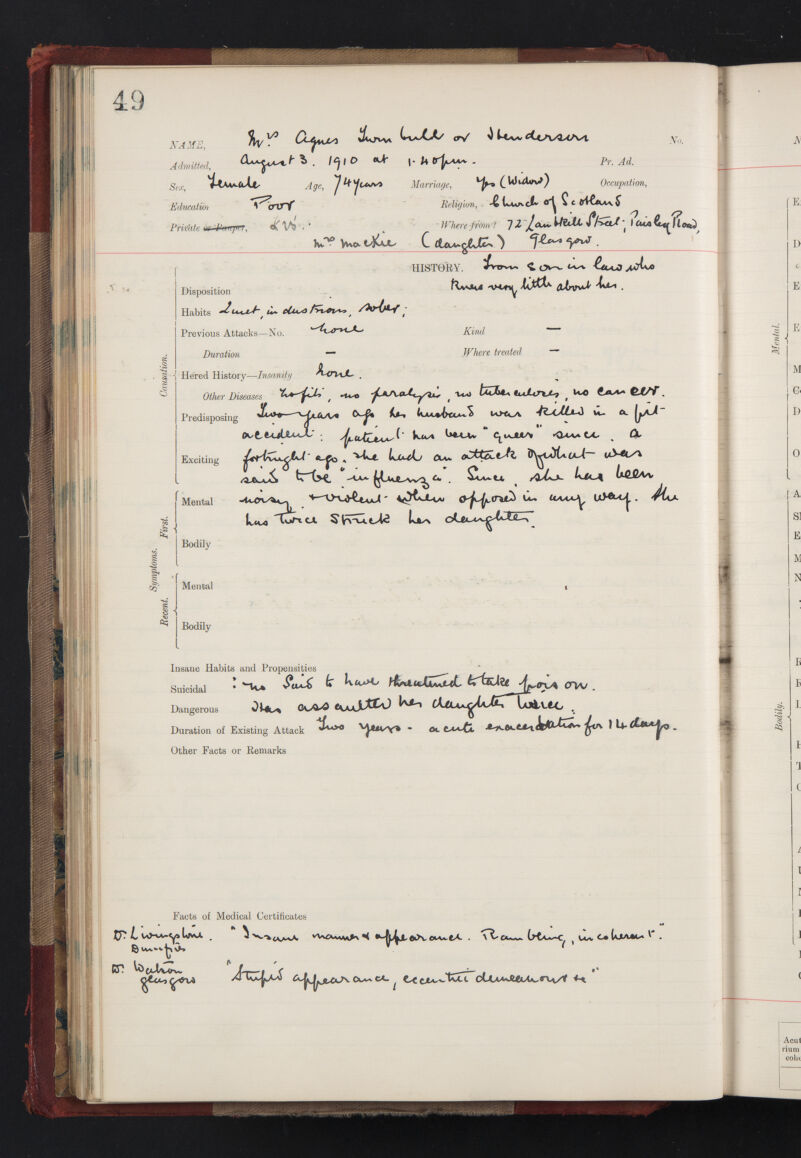 49
NAME, Mrs Agnes Turnbull or Henderson No.
Admitted, August 3. 1910 at 1.40pm. Pr. Ad.
Sex, Female Age, 74 years Marriage, Yes (Widow) Occupation,
Education Poor Religion, Church of Scotland
Private or Pauper, Where from? 72 Street, Paisley Road,
Mrs Mackie (daughter) Glasgow.
HISTORY. From Son in law who
knew very little about her.
Disposition
Habits Quiet, industrious, sober;
Previous Attacks—No. None Kind —
Duration — Where treated —
Hered History—Insanity None.
Other Diseases No fits, no paralysis, no tuberculosis, no cancer.
Predisposing Two years ago her husband was killed in a pit
accident: patient has been "queer" since. A
Exciting fortnight ago, she had an attack of what was
said to be "influenza". Since, she has been
Mental noisy, + violent when opposed in any way. She
has twice struck her daughter.
Bodily
Mental
Bodily
Causation.
Symptoms.
First.
Recent.
Insane Habits and Propensities
Suicidal : no Said to have threatened to take poison.
Dangerous Has assaulted her daughter twice.
Duration of Existing Attack Two years - acute exacerbation for 14 days.
Other Facts or Remarks
Facts of Medical Certificates
Dr. Livingstone. "Insane manner & appearance. Rambling, incoherent".
Dumfries
Dr. Watson
Glasgow "Stupid appearance, eccentric demeanour &c"
Mental.
Bodily.
Acut
rium
coho